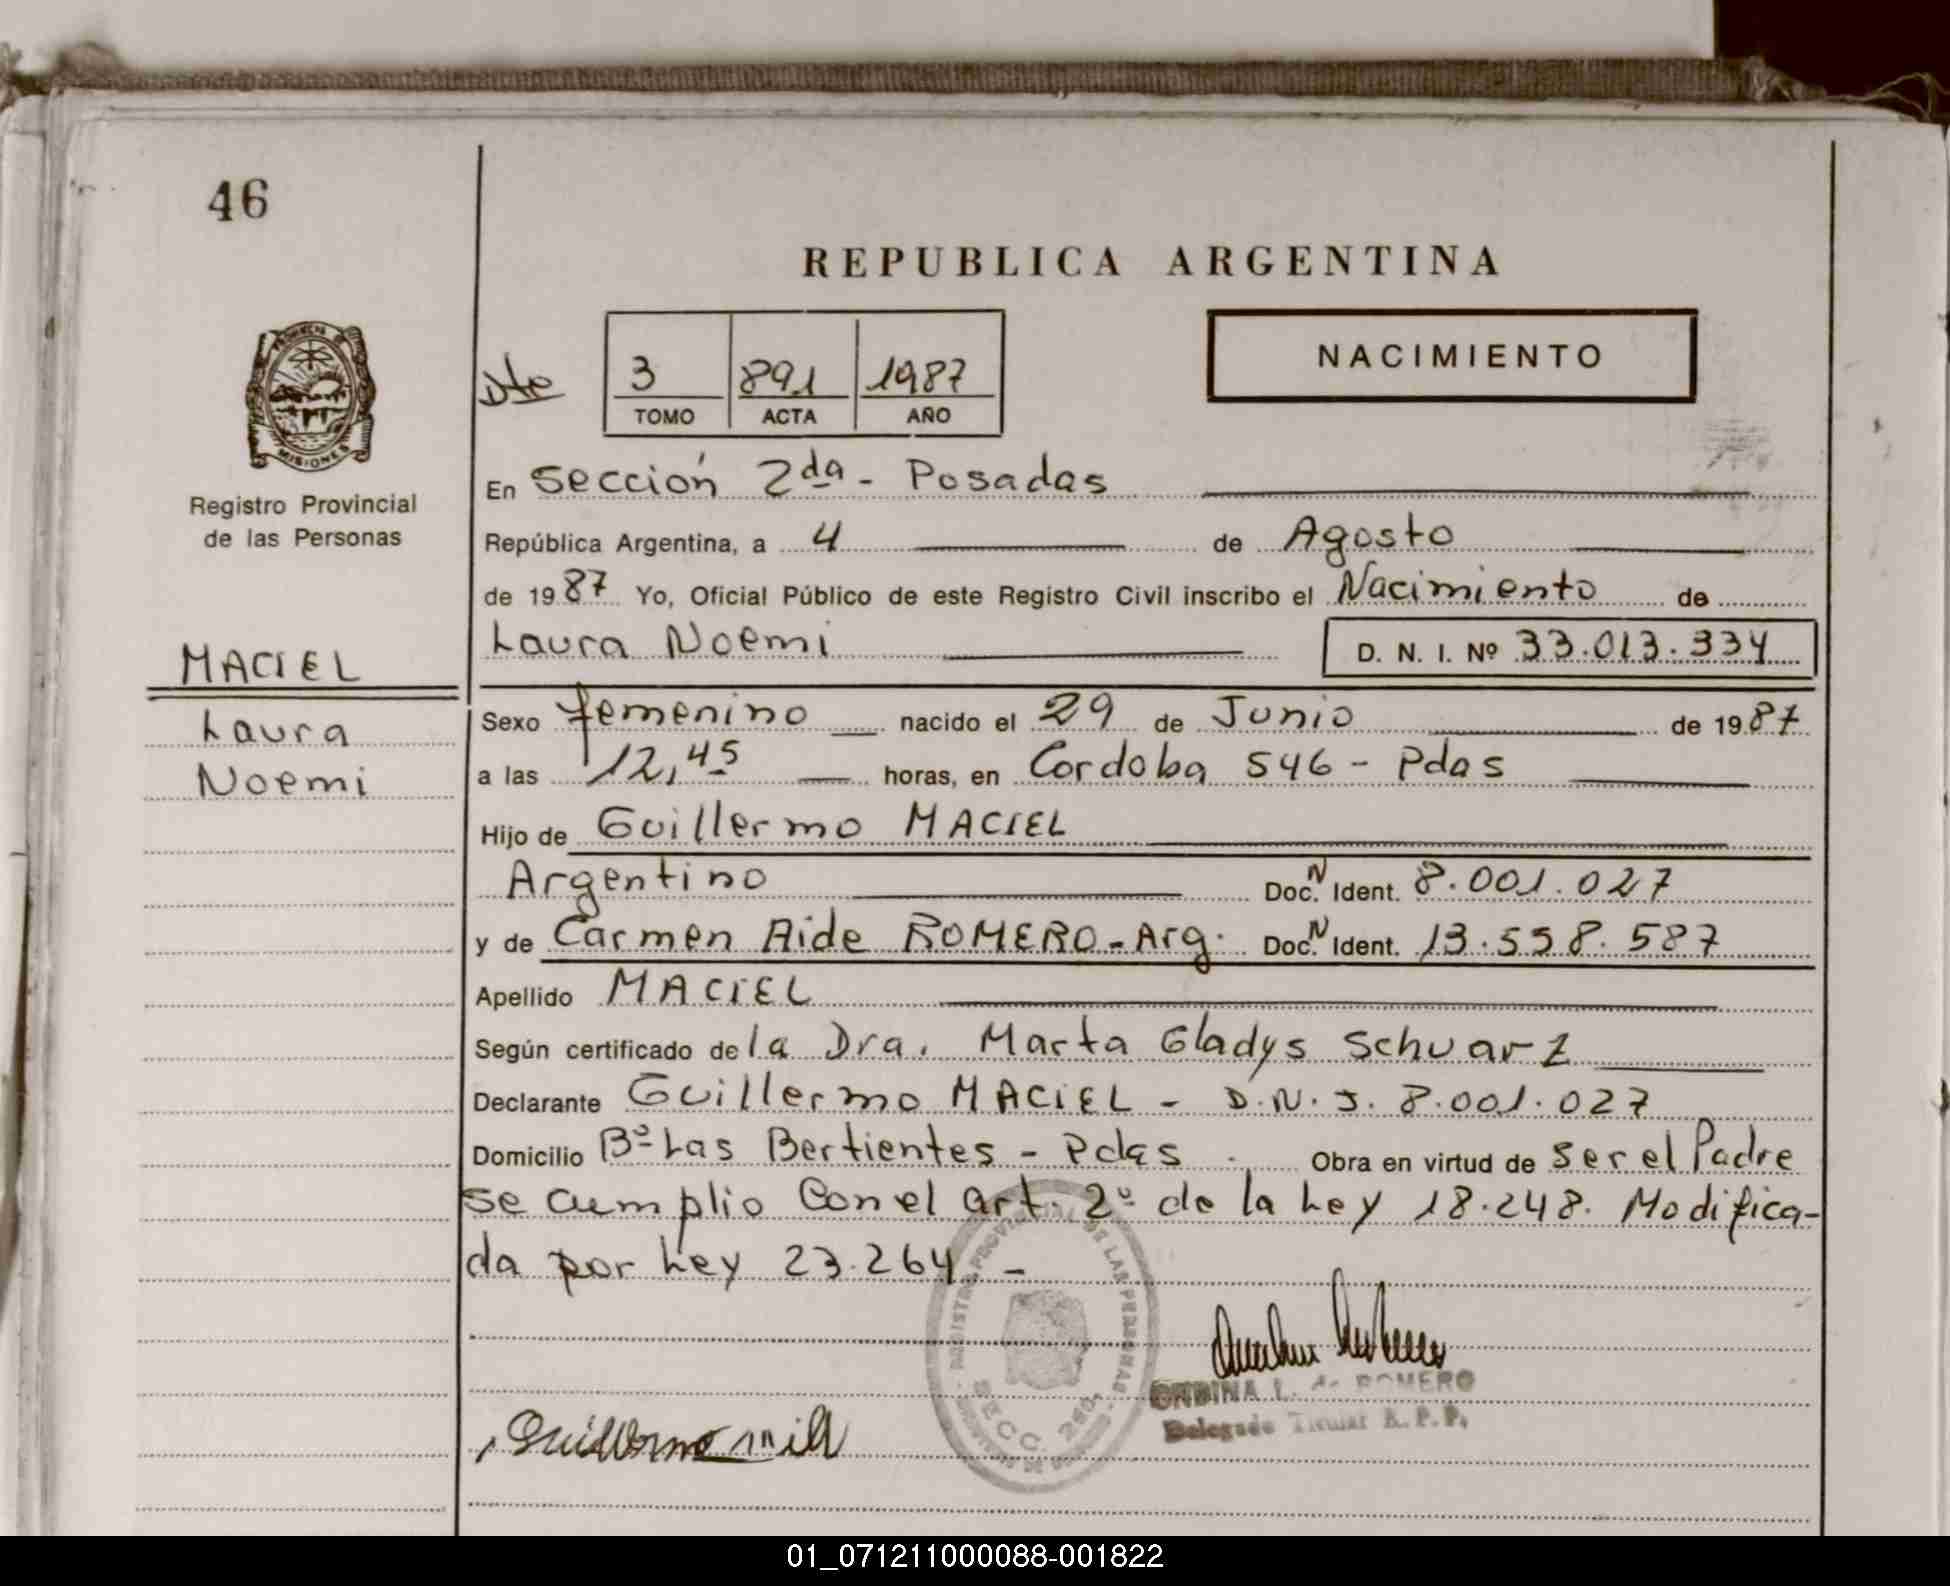 46
REPUBLICA ARGENTINA
PROVINCIA DE
MISIONES
Registro Provincial
de las Personas
Dto
3 891 1987
TOMO ACTA AÑO
NACIMIENTO
En Sección 2da - Posadas
República Argentina, a 4 de Agosto
de 1987 Yo, Oficial Público de este Registro Civil inscribo el Nacimiento de
Laura Noemi D. N. I. Nº 33.013.334
MACIEL
Laura
Noemi
Sexo femenino nacido el 29 de Junio de 1987
a las 12,45 horas, en Cordoba 546 - Pdas
Hijo de Guillermo MACIEL
Argentino Doc. N Ident. 8.001.027
y de Carmen Aide ROMERO - Arg. Doc. N Ident. 13.558.587
Apellido MACIEL
Según certificado de la Dra. Marta Gladys Schuarz
Declarante Guillermo MACIEL - D.N.I. 8.001.027
Domicilio Bº Las Bertientes - Pdas. Obra en virtud de ser el Padre
se cumplio con el art. 2º de la Ley 18.248. Modifica-
da por Ley 23.264 -
REGISTRO PROVINCIAL DE LAS PERSONAS
SECC. 2da.
ONDINA L. de ROMERO
Delegado Titular R.P.P.
Guillermo
01_071211000088-001822